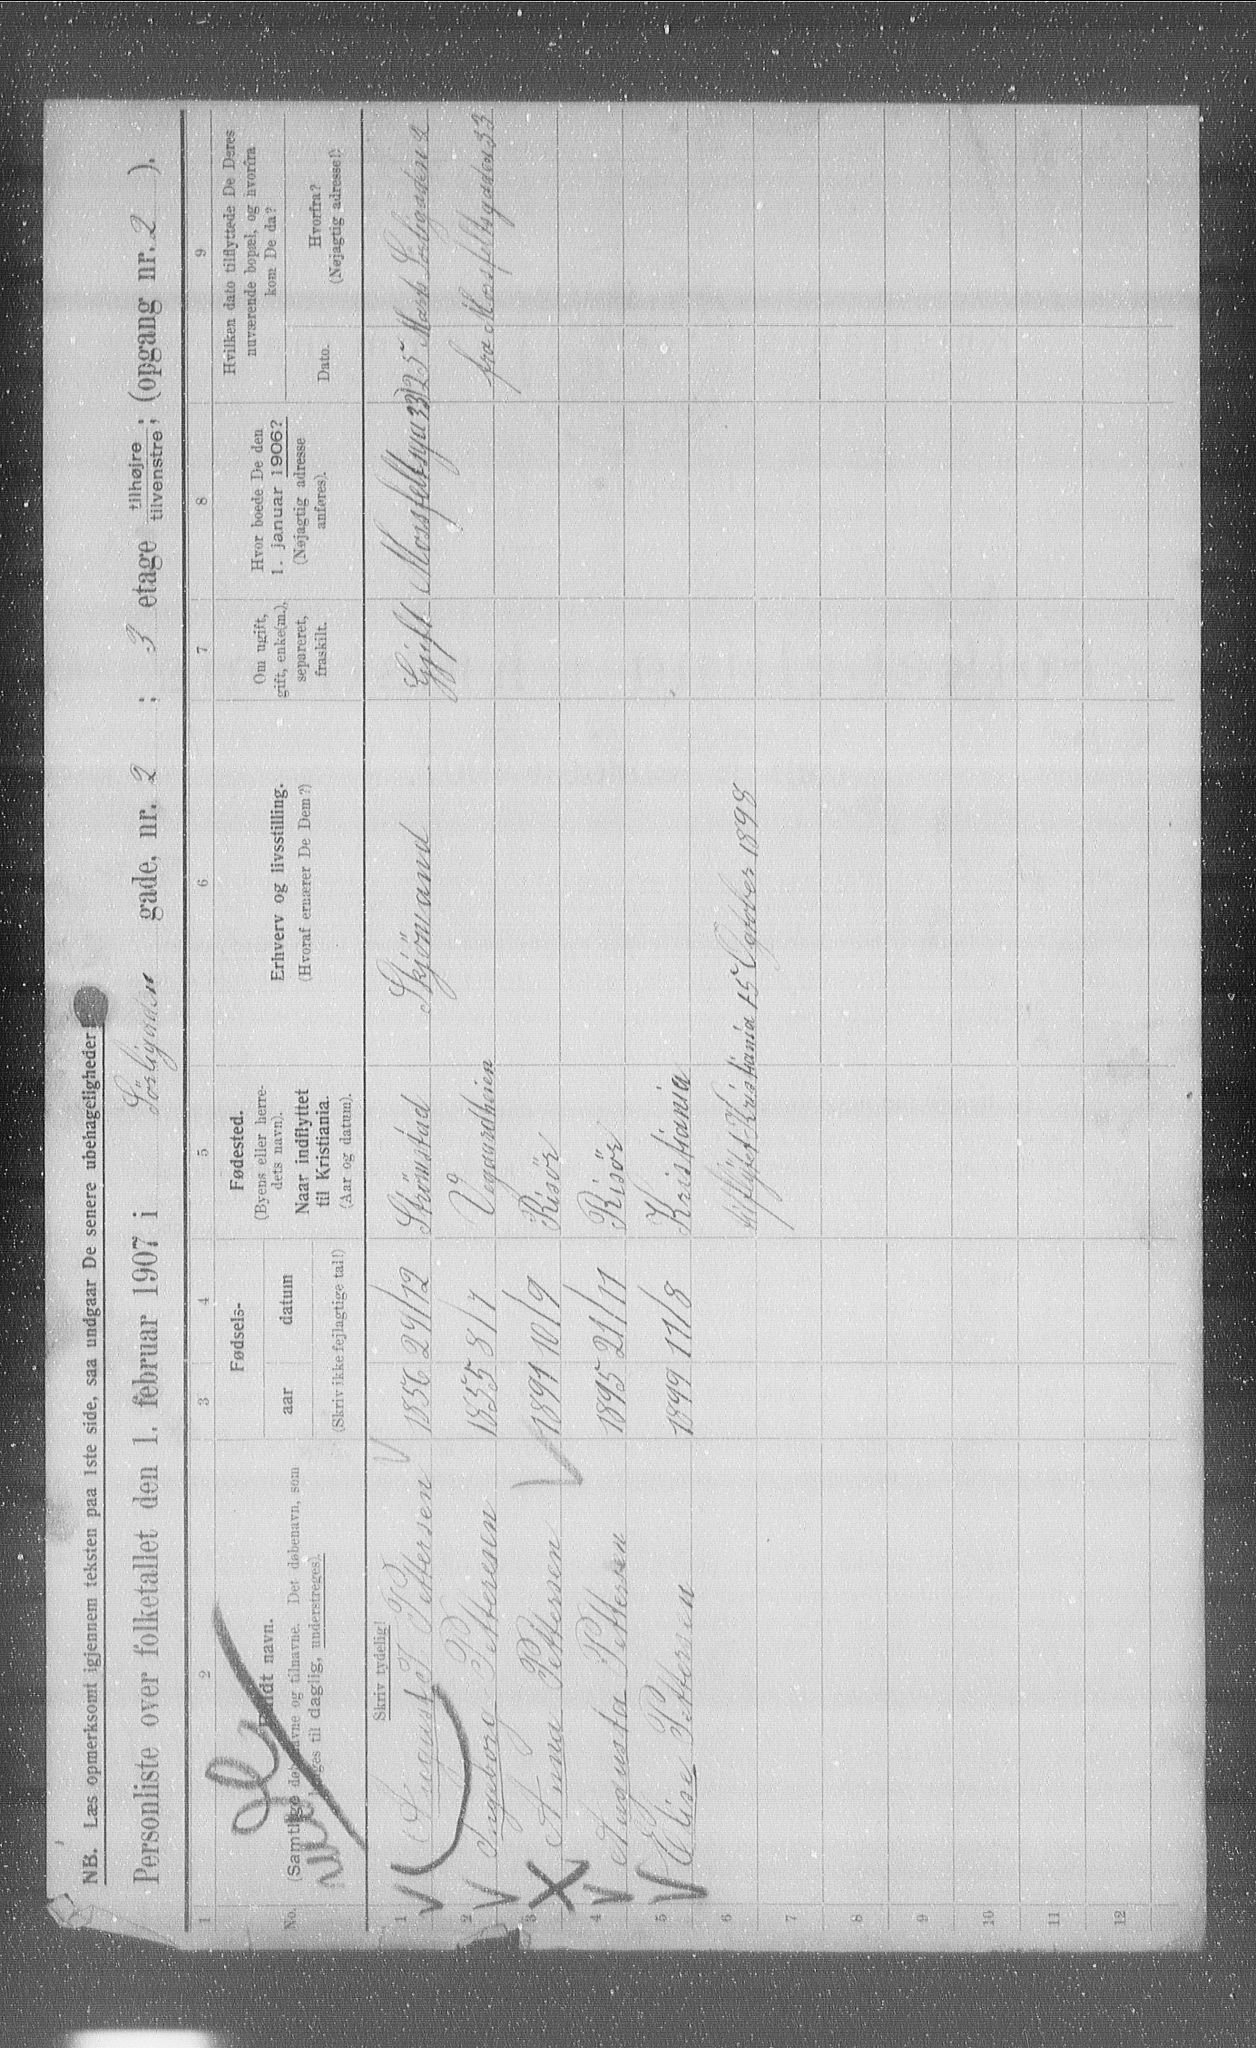 NB. Læs opmerksomt igjennem teksten paa 1ste side, saa undgaar De senere ubehageligheder
Personliste over folketallet den 1. februar 1907 i Sörligaden gade, nr. 2 ; 3 etage tilhøjre / tilvenstre ; (opgang nr. 2 ).
1 2 3 4 5 6 7 8 9
No.
Fuldt navn.
(Samtlige døbenavne og tilnavne. Det døbenavn, som
bruges til daglig, understreges).
Fødsels-
aar datum
(Skriv ikke fejlagtige tal!)
Fødested.
(Byens eller herre-
dets navn).
Naar indflyttet
til Kristiania.
(Aar og datum).
Erhverv og livsstilling.
(Hvoraf ernærer De Dem?)
Om ugift,
gift, enke(m.),
separeret,
fraskilt.
Hvor boede De den
1. januar 1906?
(Nøjagtig adresse
anføres).
Hvilken dato tilflyttede De Deres
nuværende bopæl, og hvorfra
kom De da?
Dato.
Hvorfra?
(Nøjagtig adresse!)
Skriv tydelig!
1 August J Pettersen 1856 29/12 Strömstad Skjömand Gjift 25 Mars Sörligaden 2
2 Ingeborg Petteresen 1855 8/7 Vegaardheien fra Morsfeltsgaden 33
3 Anna Pettersen 1891 10/9 Risör
4 Augusta Pettersen 1895 21/11 Risör
5 Elise Pettersen 1899 17/8 Kristiania
6 Kristiania 15 1898
7
8
9
10
11
12